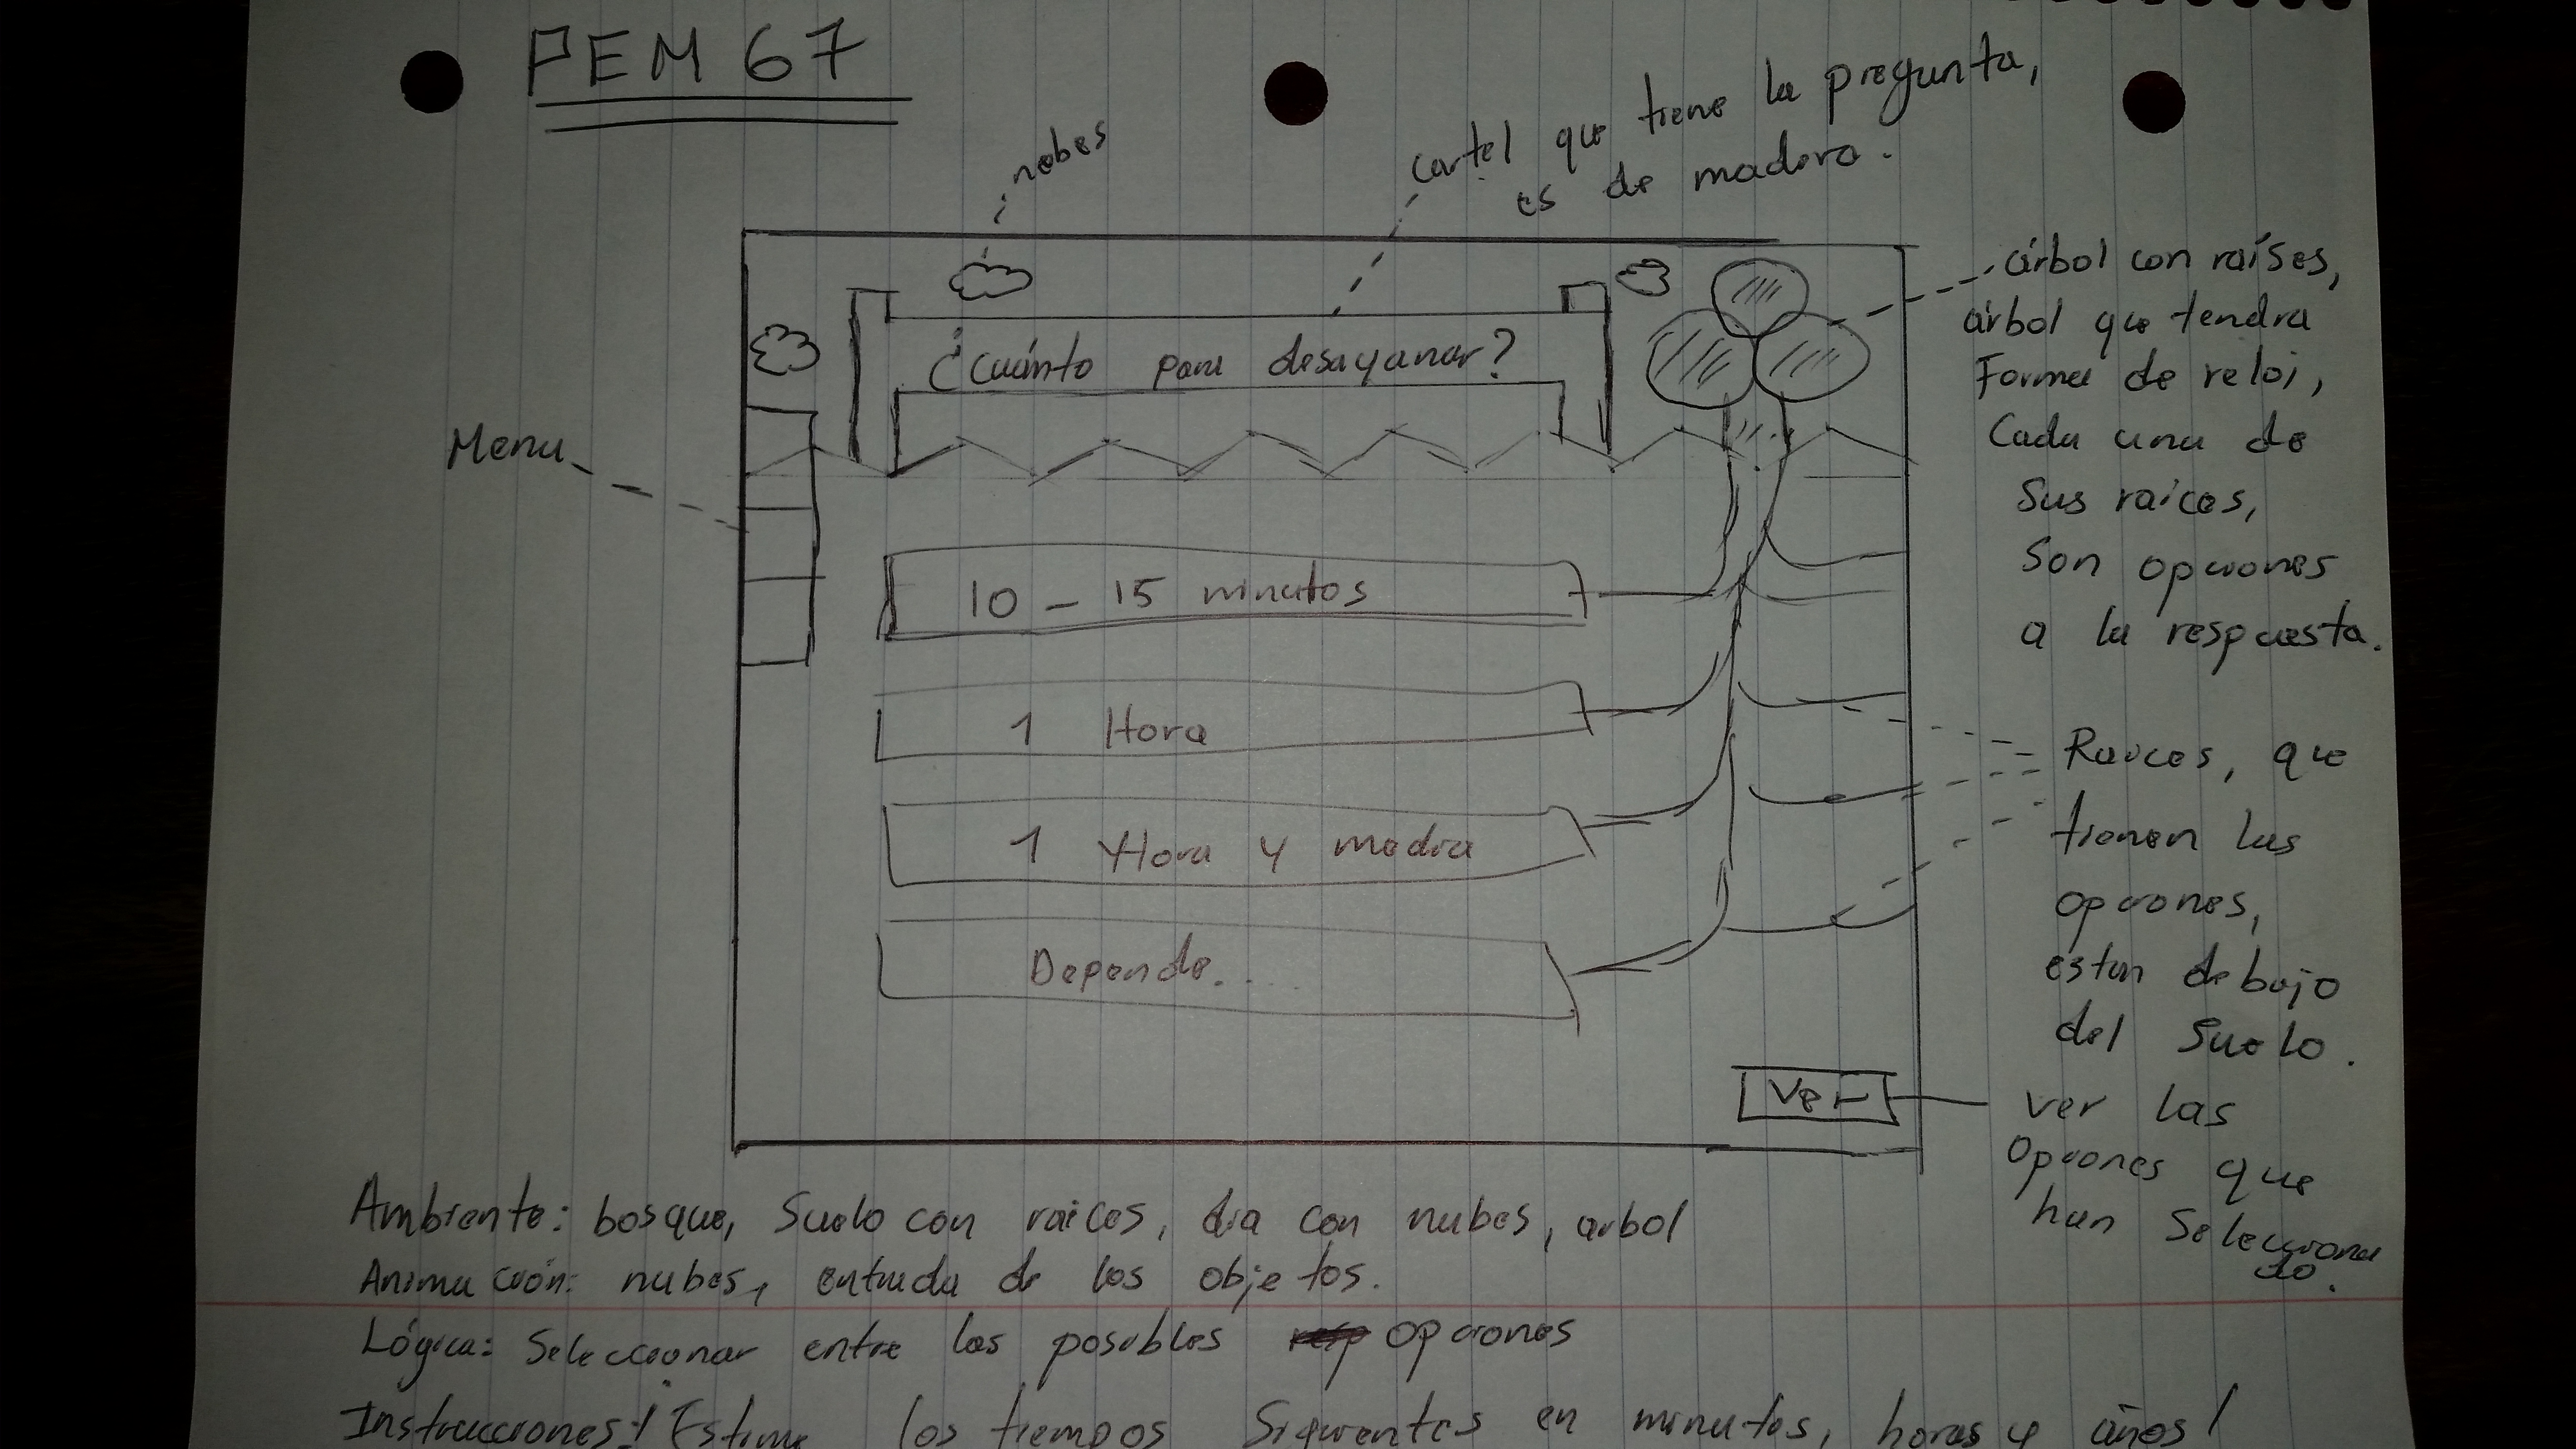 PEM 67
nobes
cartel que tiene la pregunta,
es de madera.
¿Cuánto para desayunar?
árbol con raíses,
árbol que tendra
Forma de reloj,
Cada una de
sus raices,
Son opciones
a la respuesta.
Menu
10 - 15 minutos
1 Hora
1 Hora y media
Depende....
Raices, que
tienen las
opciones,
estan debajo
del Suelo.
Ver
ver las
Opciones que
han Selecciona
do.
Ambiente: bosque, Suelo con raices, dia con nubes, arbol
Animación: nubes, entrada de los objetos.
Lógica: Seleccionar entre las posibles opciones
Instrucciones: ¡Estima los tiempos Siguientes en minutos, horas y años!